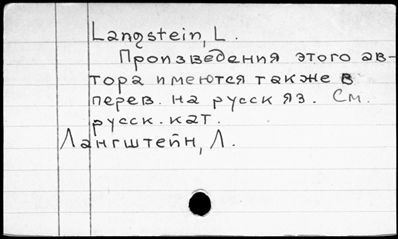 Langstein, L.
Произведения этого ав-
тора имеются также в
перев. на русск яз. См.
русск. кат.
Лангштейн, Л.